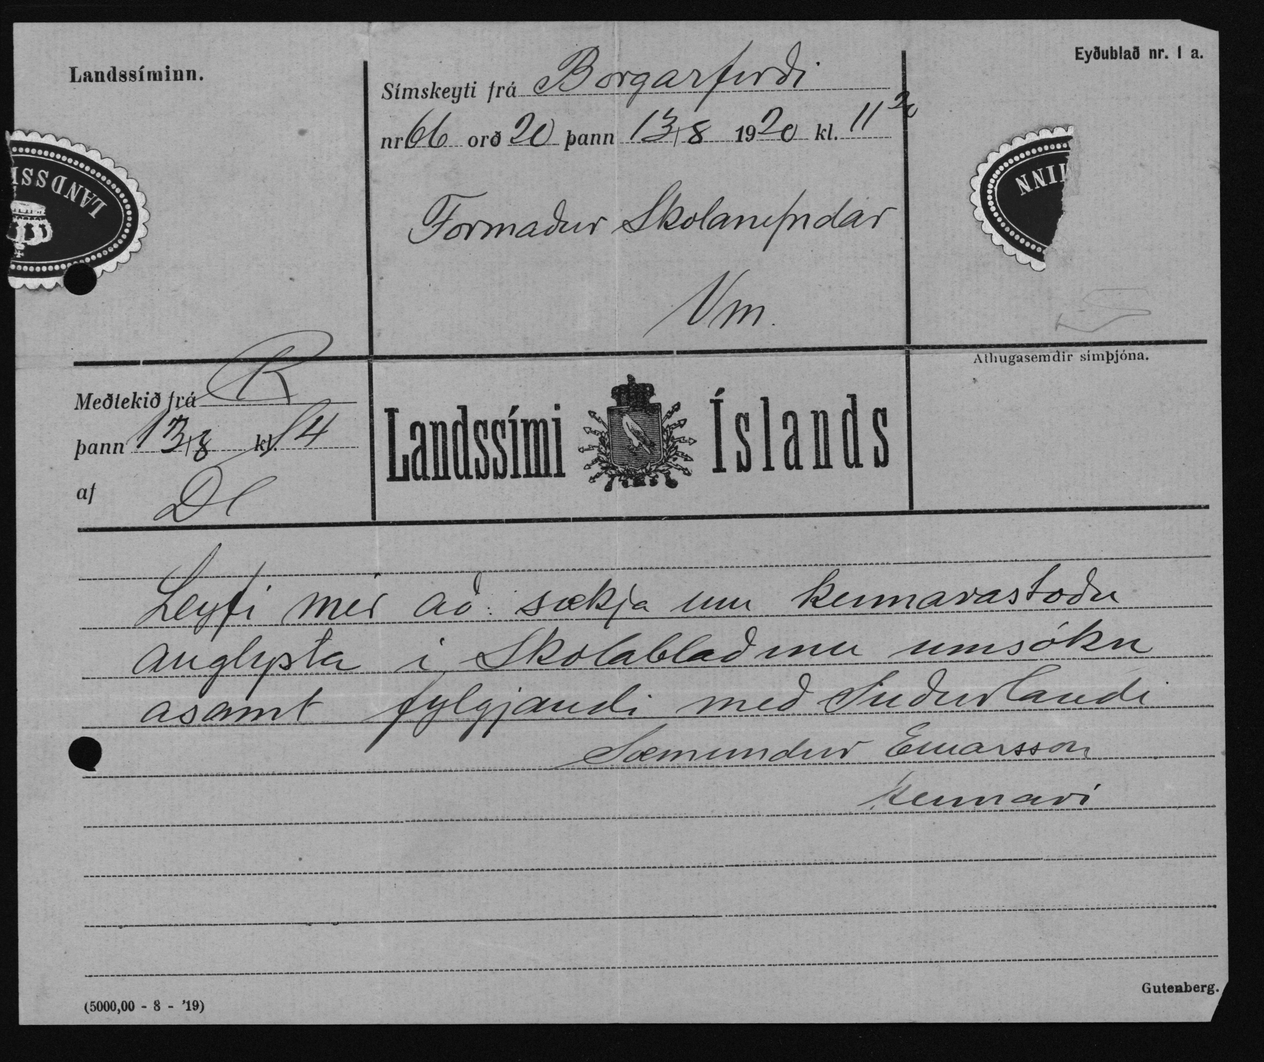 Landssíminn.
Eyðublað nr. 1 a.
Símskeyti frá Borgarfirði
nr 66 orð 20 þann 13/8 1920 kl. 11 20
LANDSSÍ
MINN
Formaður Skolanefndar
Vm.
Meðtekið frá R
þann 13/8 kl. 14
af
Landssími Íslands
Athugasemdir símþjóna.
Leyfi mér að sækja um kennarastöðu
auglysta i Skolablaðinu umsókn
asamt fylgjandi með Suðurlandi
Sæmundur Einarsson
kennari
(5000,00 - 8 - '19)
Gutenberg.